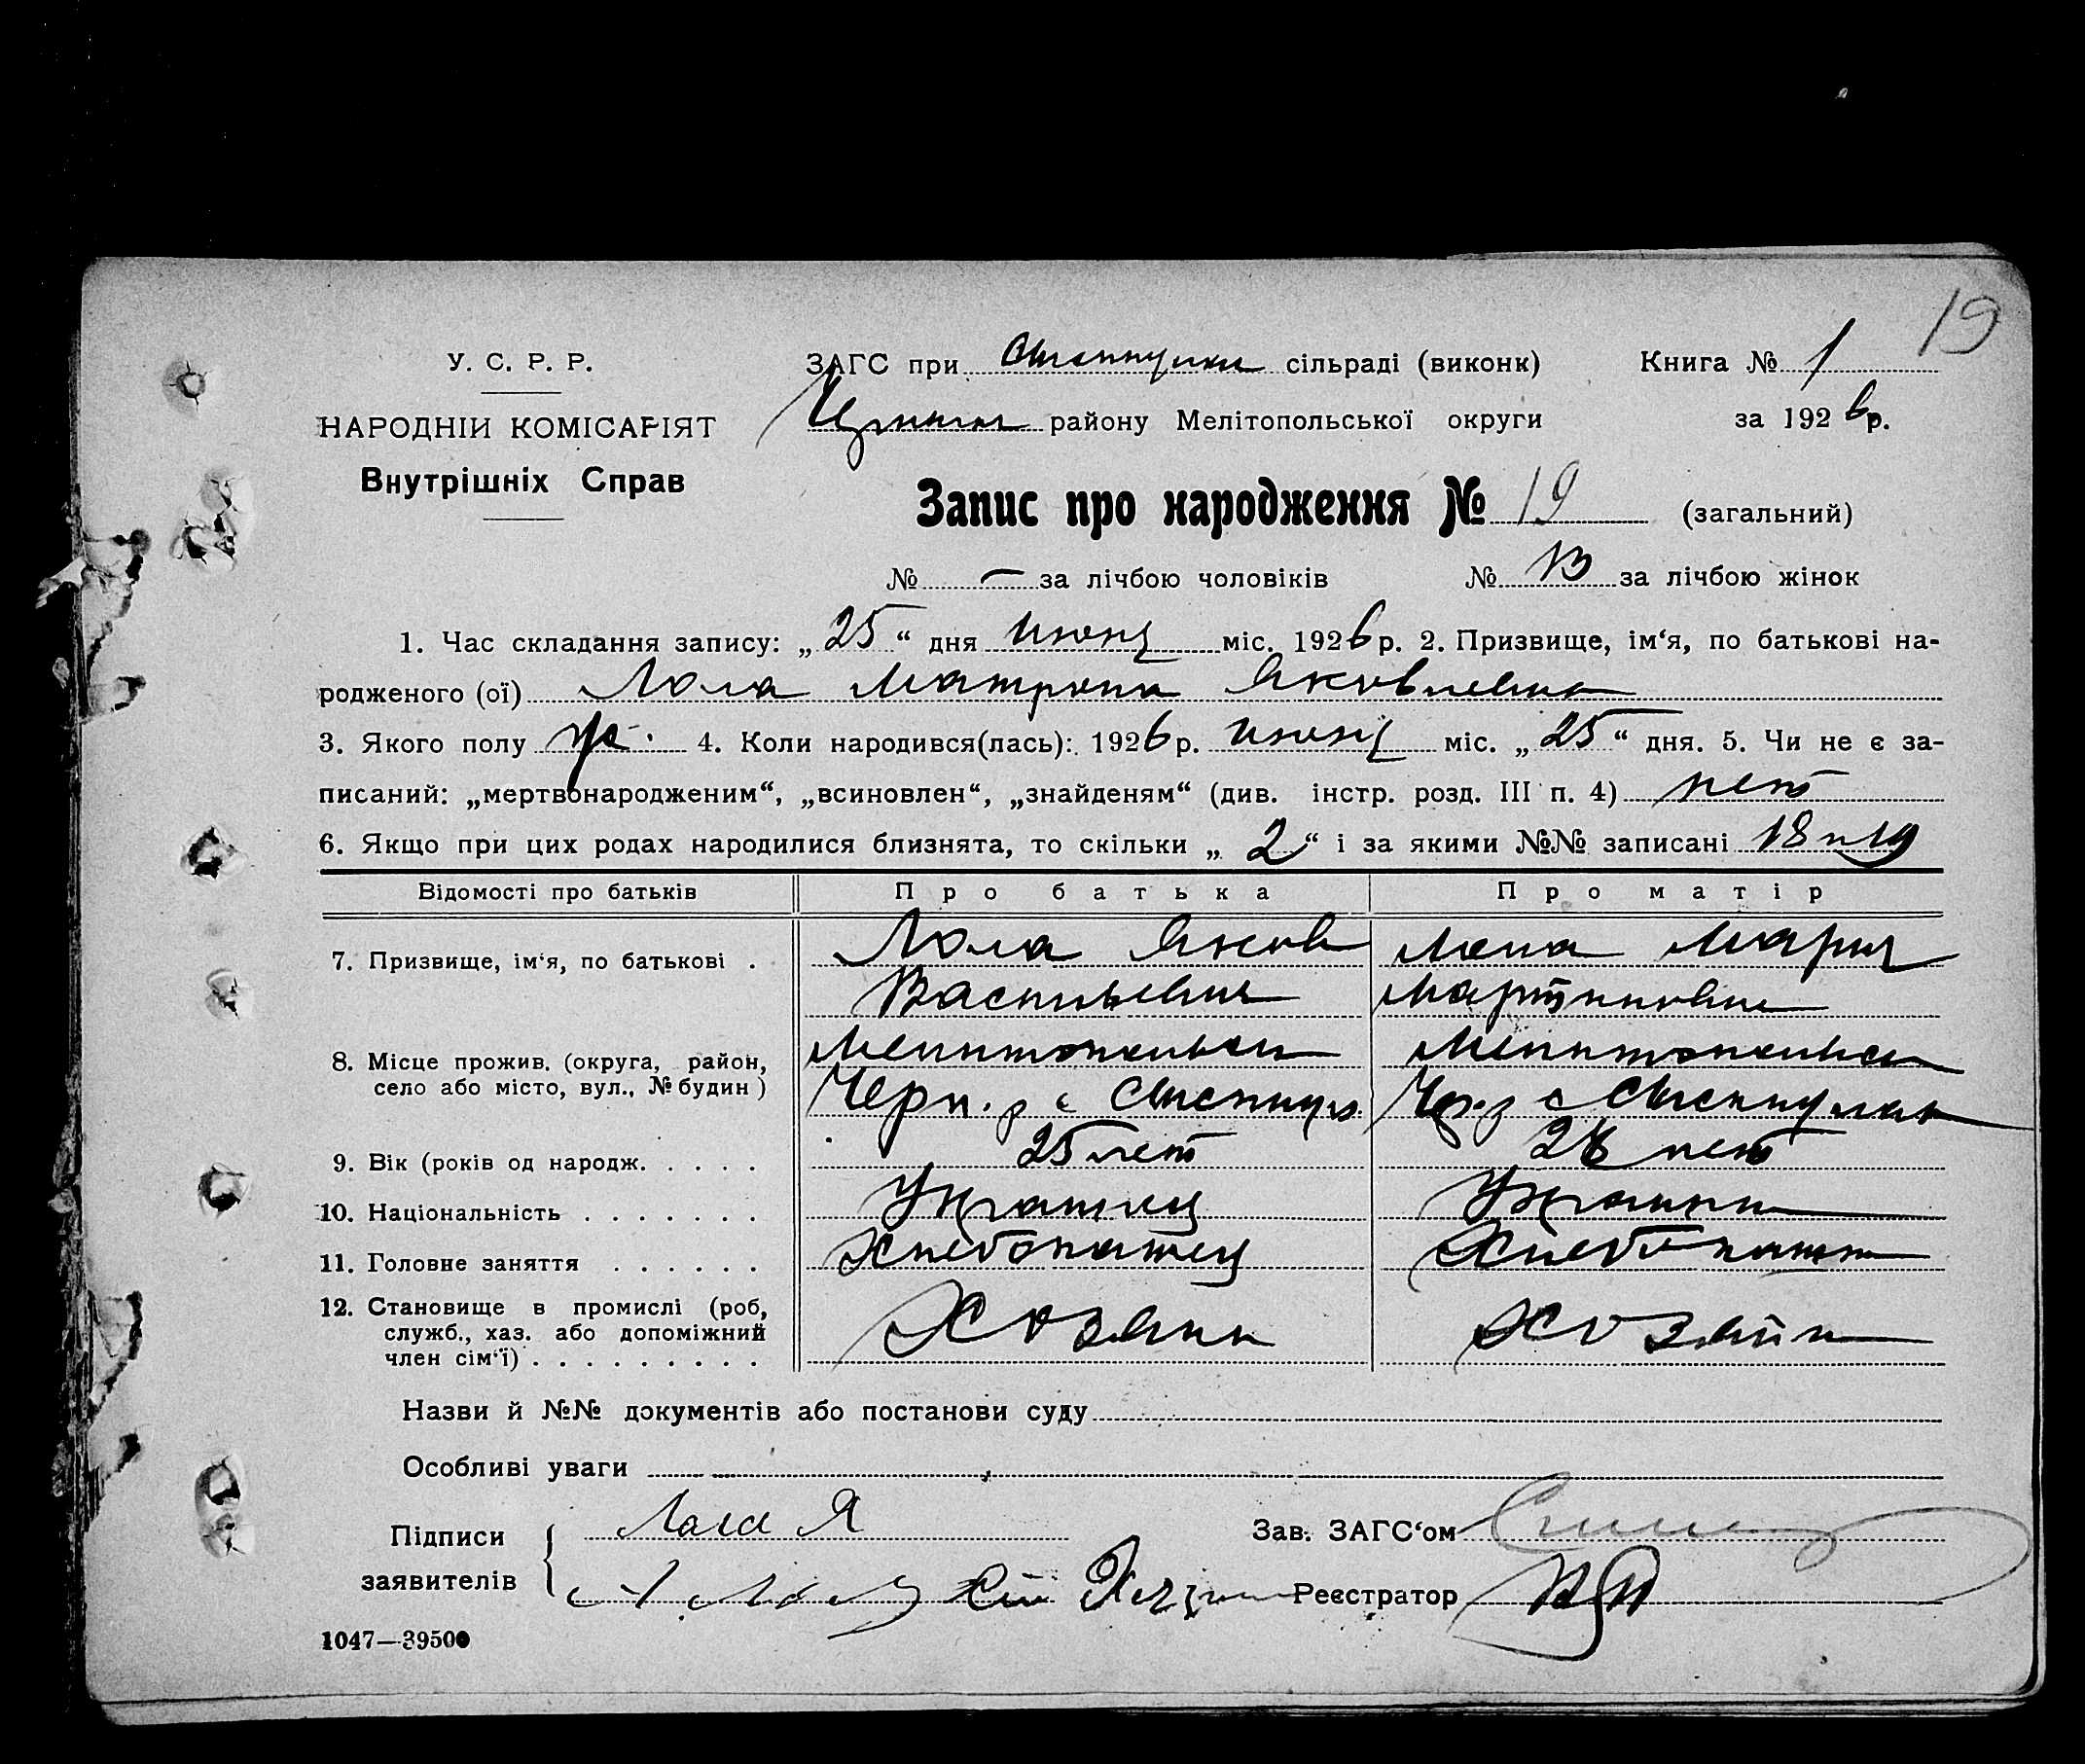 19
У. С. Р. Р.
ЗАГС при сільраді (виконк)
Книга № 1
НАРОДНІЙ КОМІСАРІЯТ
району Мелітопольської округи
за 1926 р.
Внутрішніх Справ
Запис про народження № 19 (загальний)
№ — за лічбою чоловіків № 13 за лічбою жінок
1. Час складання запису: „25“ дня июня міс. 1926 р. 2. Призвище, ім‘я, по батькові на-
родженого (ої) Лола Матрона Яковлевна
3. Якого полу ж. 4. Коли народився(лась): 1926 р. июня міс. „25“ дня. 5. Чи не є за-
писаний: „мертвонародженим“, „всиновлен“, „знайденям“ (див. інстр. розд. III п. 4) нет
6. Якщо при цих родах народилися близнята, то скільки „2“ і за якими №№ записані 18 и 19
Відомості про батьків Про батька Про матір
7. Призвище, ім‘я, по батькові . Лола Яков Лола Мария
Васильевич Мартиновна
8. Місце прожив. (округа, район, село або місто, вул., № будин)
Черн. р с
9. Вік (років од народж. . . . . 25 лет лет
10. Національність . . . . . . . Украинец Украинк
11. Головне заняття . . . . . . Хлебопашец Хлебопаш
12. Становище в промислі (роб, служб., хаз. або допоміжний член сім‘ї) . . . . . . . . . Хозяин Хозяйк
Назви й №№ документів або постанови суду
Особливі уваги
Підписи заявителів
Лола Я
Зав. ЗАГС‘ом
Реєстратор
1047—39500